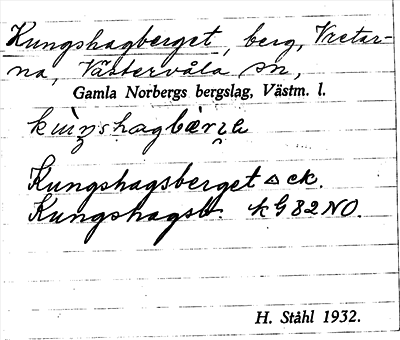 Kungshagberget, berg, Vretar-
na, Västervåla sn,
Gamla Norbergs bergslag, Västm. l.
Kungshagsberget ▵ ck.
Kungshagsb. kG 82 NO.
H. Ståhl 1932.